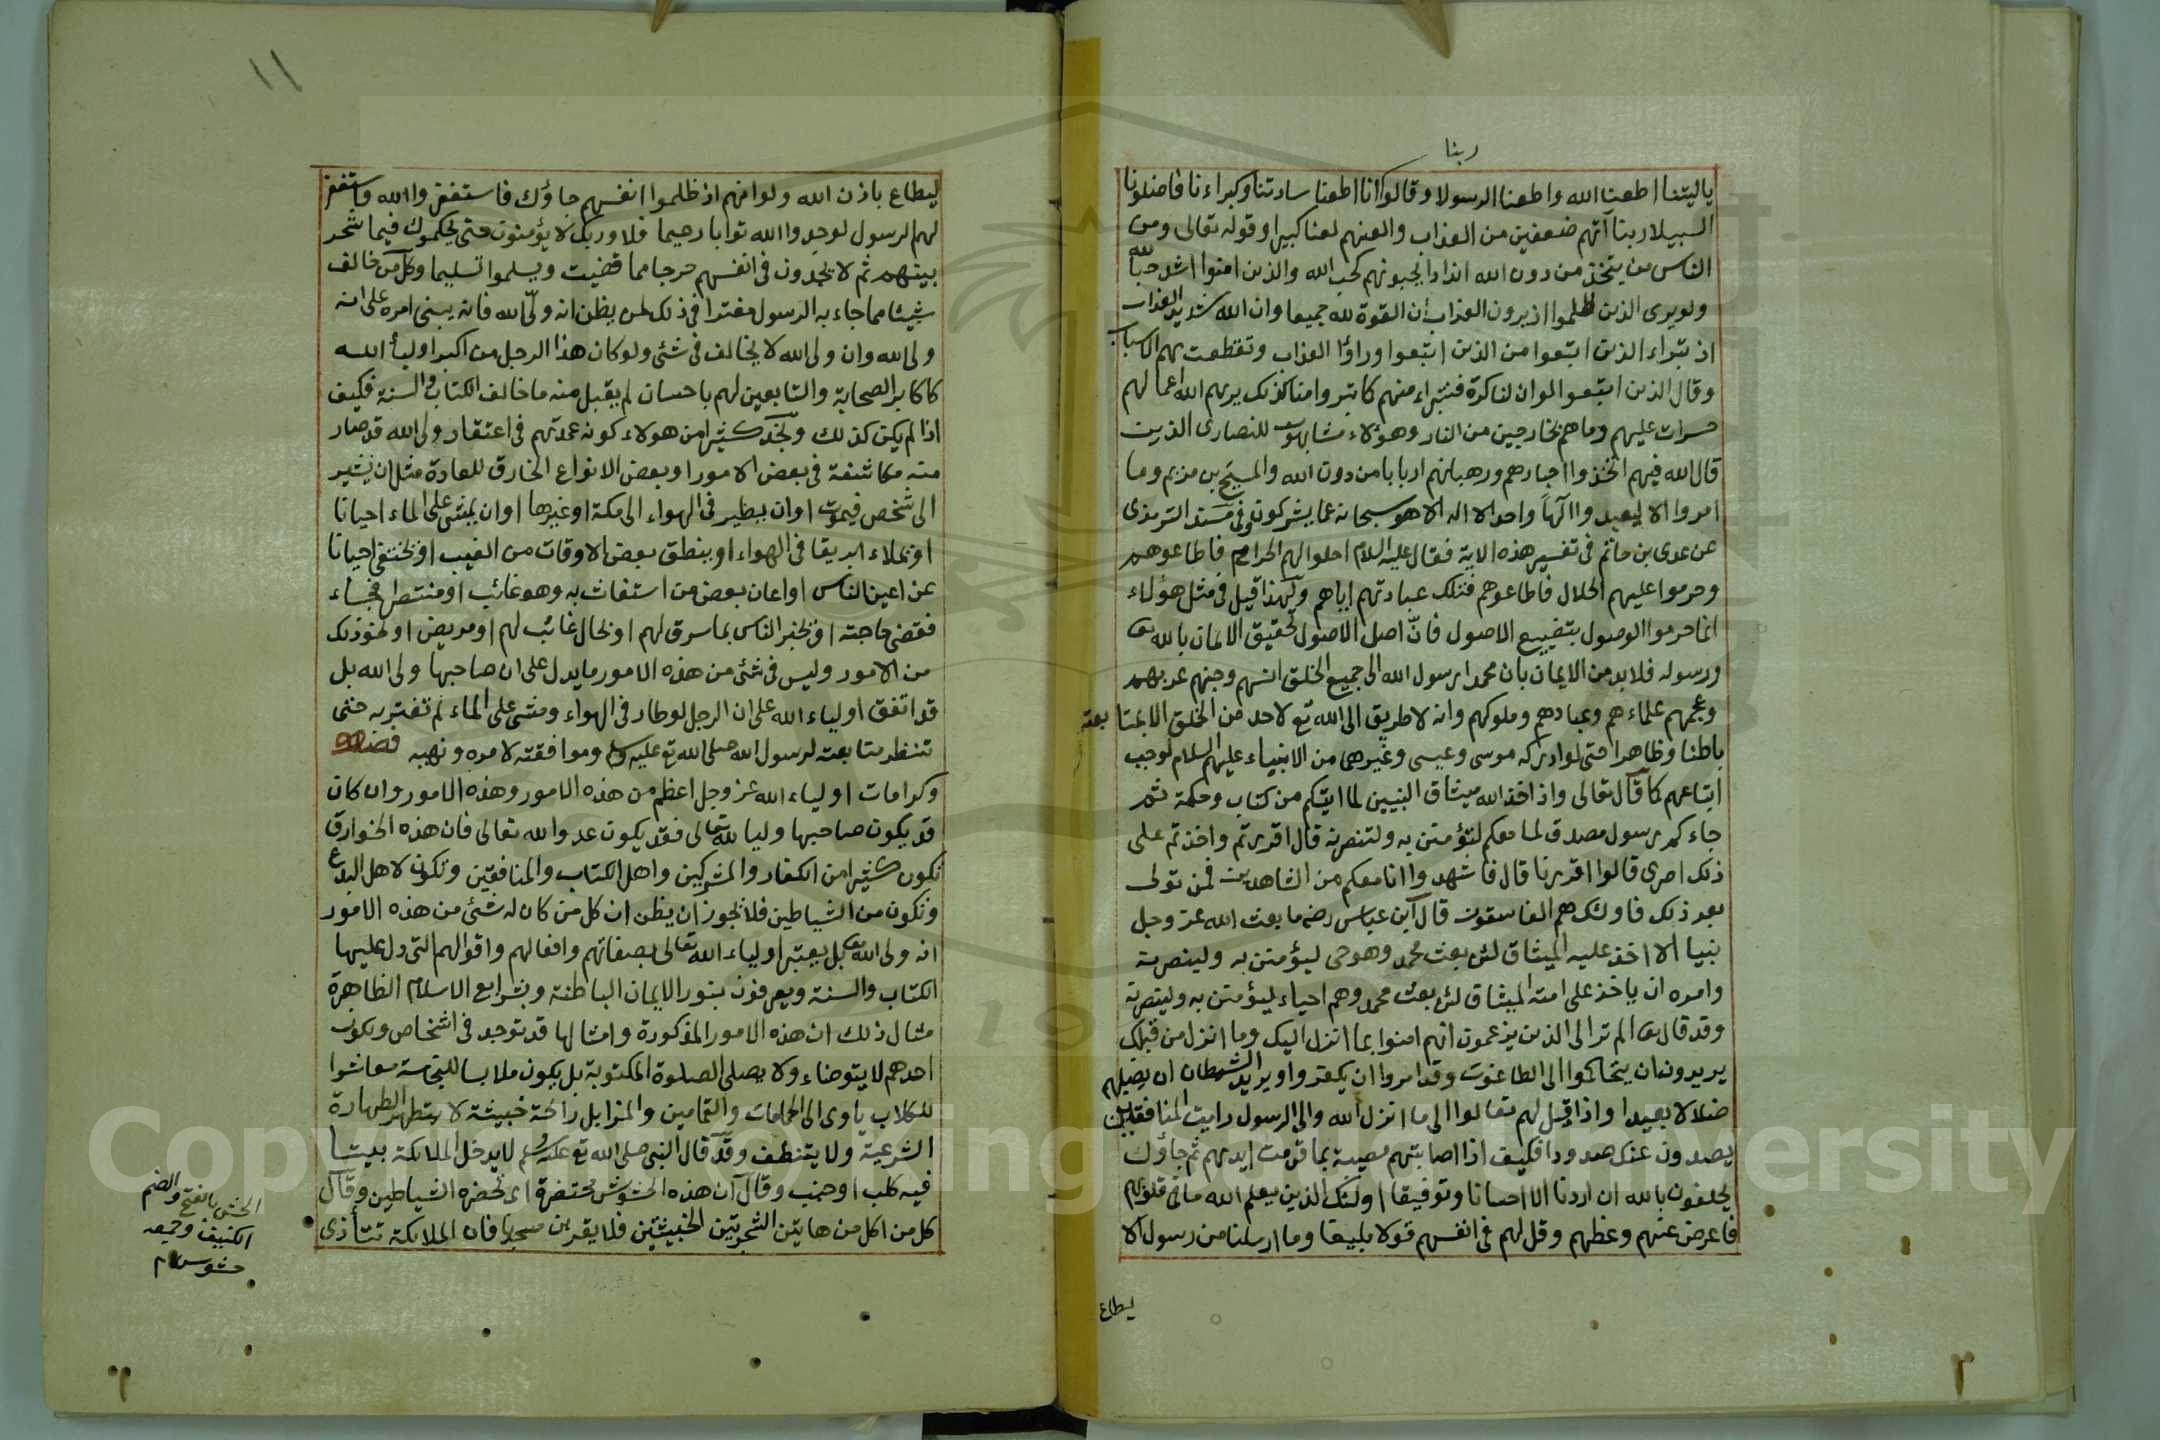 ربنا
ياليتنا اطعنا الله واطعنا الرسولا وقالوا انا اطعنا سادتنا وكبراءنا فاضلونا
السبيلا ربنا آتهم ضعفين من العذاب والعنهم لعنا كبيرا وقوله تعالى ومن
الناس من يتخذ من دون الله اندادا يحبونهم كحب الله والذين امنوا اشد حبا لله
ولو يرى الذين ظلموا اذ يرون العذاب ان القوة لله جميعا وان الله شديد العذاب
اذ تبراء الذين اتبعوا من الذين اتبعوا وراؤا العذاب وتقطعت بهم الاسباب
وقال الذين اتبعوا لو ان لنا كرة فنتبراء منهم كما تبروا منا كذلك يريهم الله اعمالهم
حسرات عليهم وما هم بخارجين من النار وهؤلاء مشابهون للنصارى الذين
قال الله فيهم اتخذوا احبارهم ورهبانهم اربابا من دون الله والمسيح بن مريم وما
امروا الا ليعبدوا الٓهاً واحدا لا اله الا هو سبحانه عما يشركون وفي مسند الترمذى
عن عدى بن حاتم في تفسير هذه الاية فقال عليه السلام احلوا لهم الحرام فاطاعوهم
وحرموا عليهم الحلال فاطاعوهم فتلك عبادتهم اياهم ولهذا قيل في مثل هؤلاء
انما حرموا الوصول بتضييع الاصول فانّ اصل الاصول تحقيق الايمان بالله تعا
ورسوله فلابد من الايمان بان محمدا رسول الله الى جميع الخلق انسهم وجنهم عربهم
وعجمهم علماءهم وعبادهم وملوكهم وانه لا طريق الى الله تع لاحد من الخلق الا بمتابعته
باطنا وظاهرا حتى لو ادركه موسى وعيسى وغيرهما من الانبياء عليهم السلام لوجب
اتباعهم كما قال تعالى واذ اخذ الله ميثاق النبيين لما اتيتكم من كتاب وحكمة ثم
جاءكم رسول مصدق لما معكم لتؤمنن به ولتنصرنه قال اقررتم واخذتم على
ذلك اصرى قالوا اقررنا قال فاشهدوا وانا معكم من الشاهدين فمن تولى
بعد ذلك فاولئك هم الفاسقون قال ابن عباس رضه ما بعث الله عز وجل
نبيا الا اخذ عليه الميثاق لئن بعث محمد وهو حى ليؤمنن به ولينصرنه
وامره ان ياخذ على امته الميثاق لئن بعث محمد وهم احياء ليؤمنن به ولينصرنه
وقد قال تعا الم تر الى الذين يزعمون انهم امنوا بما انزل اليك وما انزل من قبلك
يريدون ان يتحاكموا الى الطاغوت وقد امروا ان يكفروا ويريد الشيطان ان يضلهم
ضلالا بعيدا واذا قيل لهم تعالوا الى ما انزل الله والى الرسول رايت المنافقين
يصدون عنك صدودا فكيف اذا اصابتهم مصيبة بما قدمت ايديهم ثم جاؤك
يحلفون بالله ان اردنا الا احسانا وتوفيقا اولئك الذين يعلم الله ما في قلوبهم
فاعرض عنهم وعظهم وقل لهم في انفسهم قولا بليغا وما ارسلنا من رسول الا
ليطاع
١١
ليطاع باذن الله ولو انهم اذ ظلموا انفسهم جاؤك فاستغفروا الله واستغفر
لهم الرسول لوجدوا الله توابا رحيما فلا وربك لا يؤمنون حتى يحكموك فيما شجر
بينهم ثم لا يجدون في انفسهم حرجا مما قضيت ويسلموا تسليما وكل من خالف
شيئا مما جاء به الرسول مقتدا في ذلك لمن يظن انه ولّى لله فانه يبنى امره على انه
ولى لله وان ولى لله لا يخالف في شئ ولو كان هذا الرجل من اكبر اولياء الله
كاكابر الصحابة والتابعين لهم باحسان لم يقبل منه ما خالف الكتاب والسنة فكيف
اذا لم يكن كذلك وتجد كثيرا من هولاء كونه عمدتهم في اعتقاد ولى الله قد صار
منه مكاشفة في بعض الامور او بعض الانواع الخارق للعادة مثل ان يشير
الى شخص فيموت او ان يطير في الهواء الى مكة او غيرها او ان يمشى على الماء احيانا
او يملاء ابريقا في الهواء او ينطق بعض الاوقات من الغيب او يختفى احيانا
عن اعين الناس او اعان بعض من استغاث به وهو غائب او منتصرا فجاء
فقضى حاجته او يخبر الناس بما سرق لهم او بحال غائب لهم او مريض او نحو ذلك
من الامور وليس في شئ من هذه الامور ما يدل على ان صاحبها ولى الله بل
قد اتفق اولياء الله على ان الرجل لو طار في الهواء ومشى على الماء لم تغتر به حتى
تنظر متابعته لرسول الله صلى الله تع عليه وسلم وموافقته لامره ونهيه
وكرامات اولياء الله عز وجل اعظم من هذه الامور وهذه الامور وان كان
قد يكون صاحبها وليا لله تعالى فقد يكون عدوا لله تعالى فان هذه الخوارق
تكون كثيرا من الكفار والمشركين واهل الكتاب والمنافقين وتكون لاهل البدع
وتكون من الشياطين فلا يجوز ان يظن ان كل من كان له شئ من هذه الامور
انه ولى الله بل يعتبر اولياء الله تعالى بصفاتهم وافعالهم واقوالهم التى دل عليها
الكتاب والسنة ويعرفون بنور الايمان الباطنة وبشرايع الاسلام الظاهرة
مثال ذلك ان هذه الامور المذكورة وامثالها قد توجد في اشخاص ويكون
احدهم لا يتوضاء ولا يصلى الصلوة المكتوبة بل يكون ملابسا للنجاسة معاشرا
للكلاب ياوى الى الحمامات والقمامين والمزابل رائحة خبيثة لا يتطهر الطهارة
الشرعية ولا يتنظف وقد قال النبى صلى الله تع عليه وسلم لا يدخل الملائكة بيتا
فيه كلب او جنب وقال ان هذه الحشوش محتضرة اى تحضره الشياطين وقال
كل من اكل من هاتين الشجرتين الخبيثتين فلا يقربن مسجدنا فان الملائكة تتأذى
الحش بالفتح والضم
الكنيف وجمعه
حشوش م
Copyright © King Saud University
19